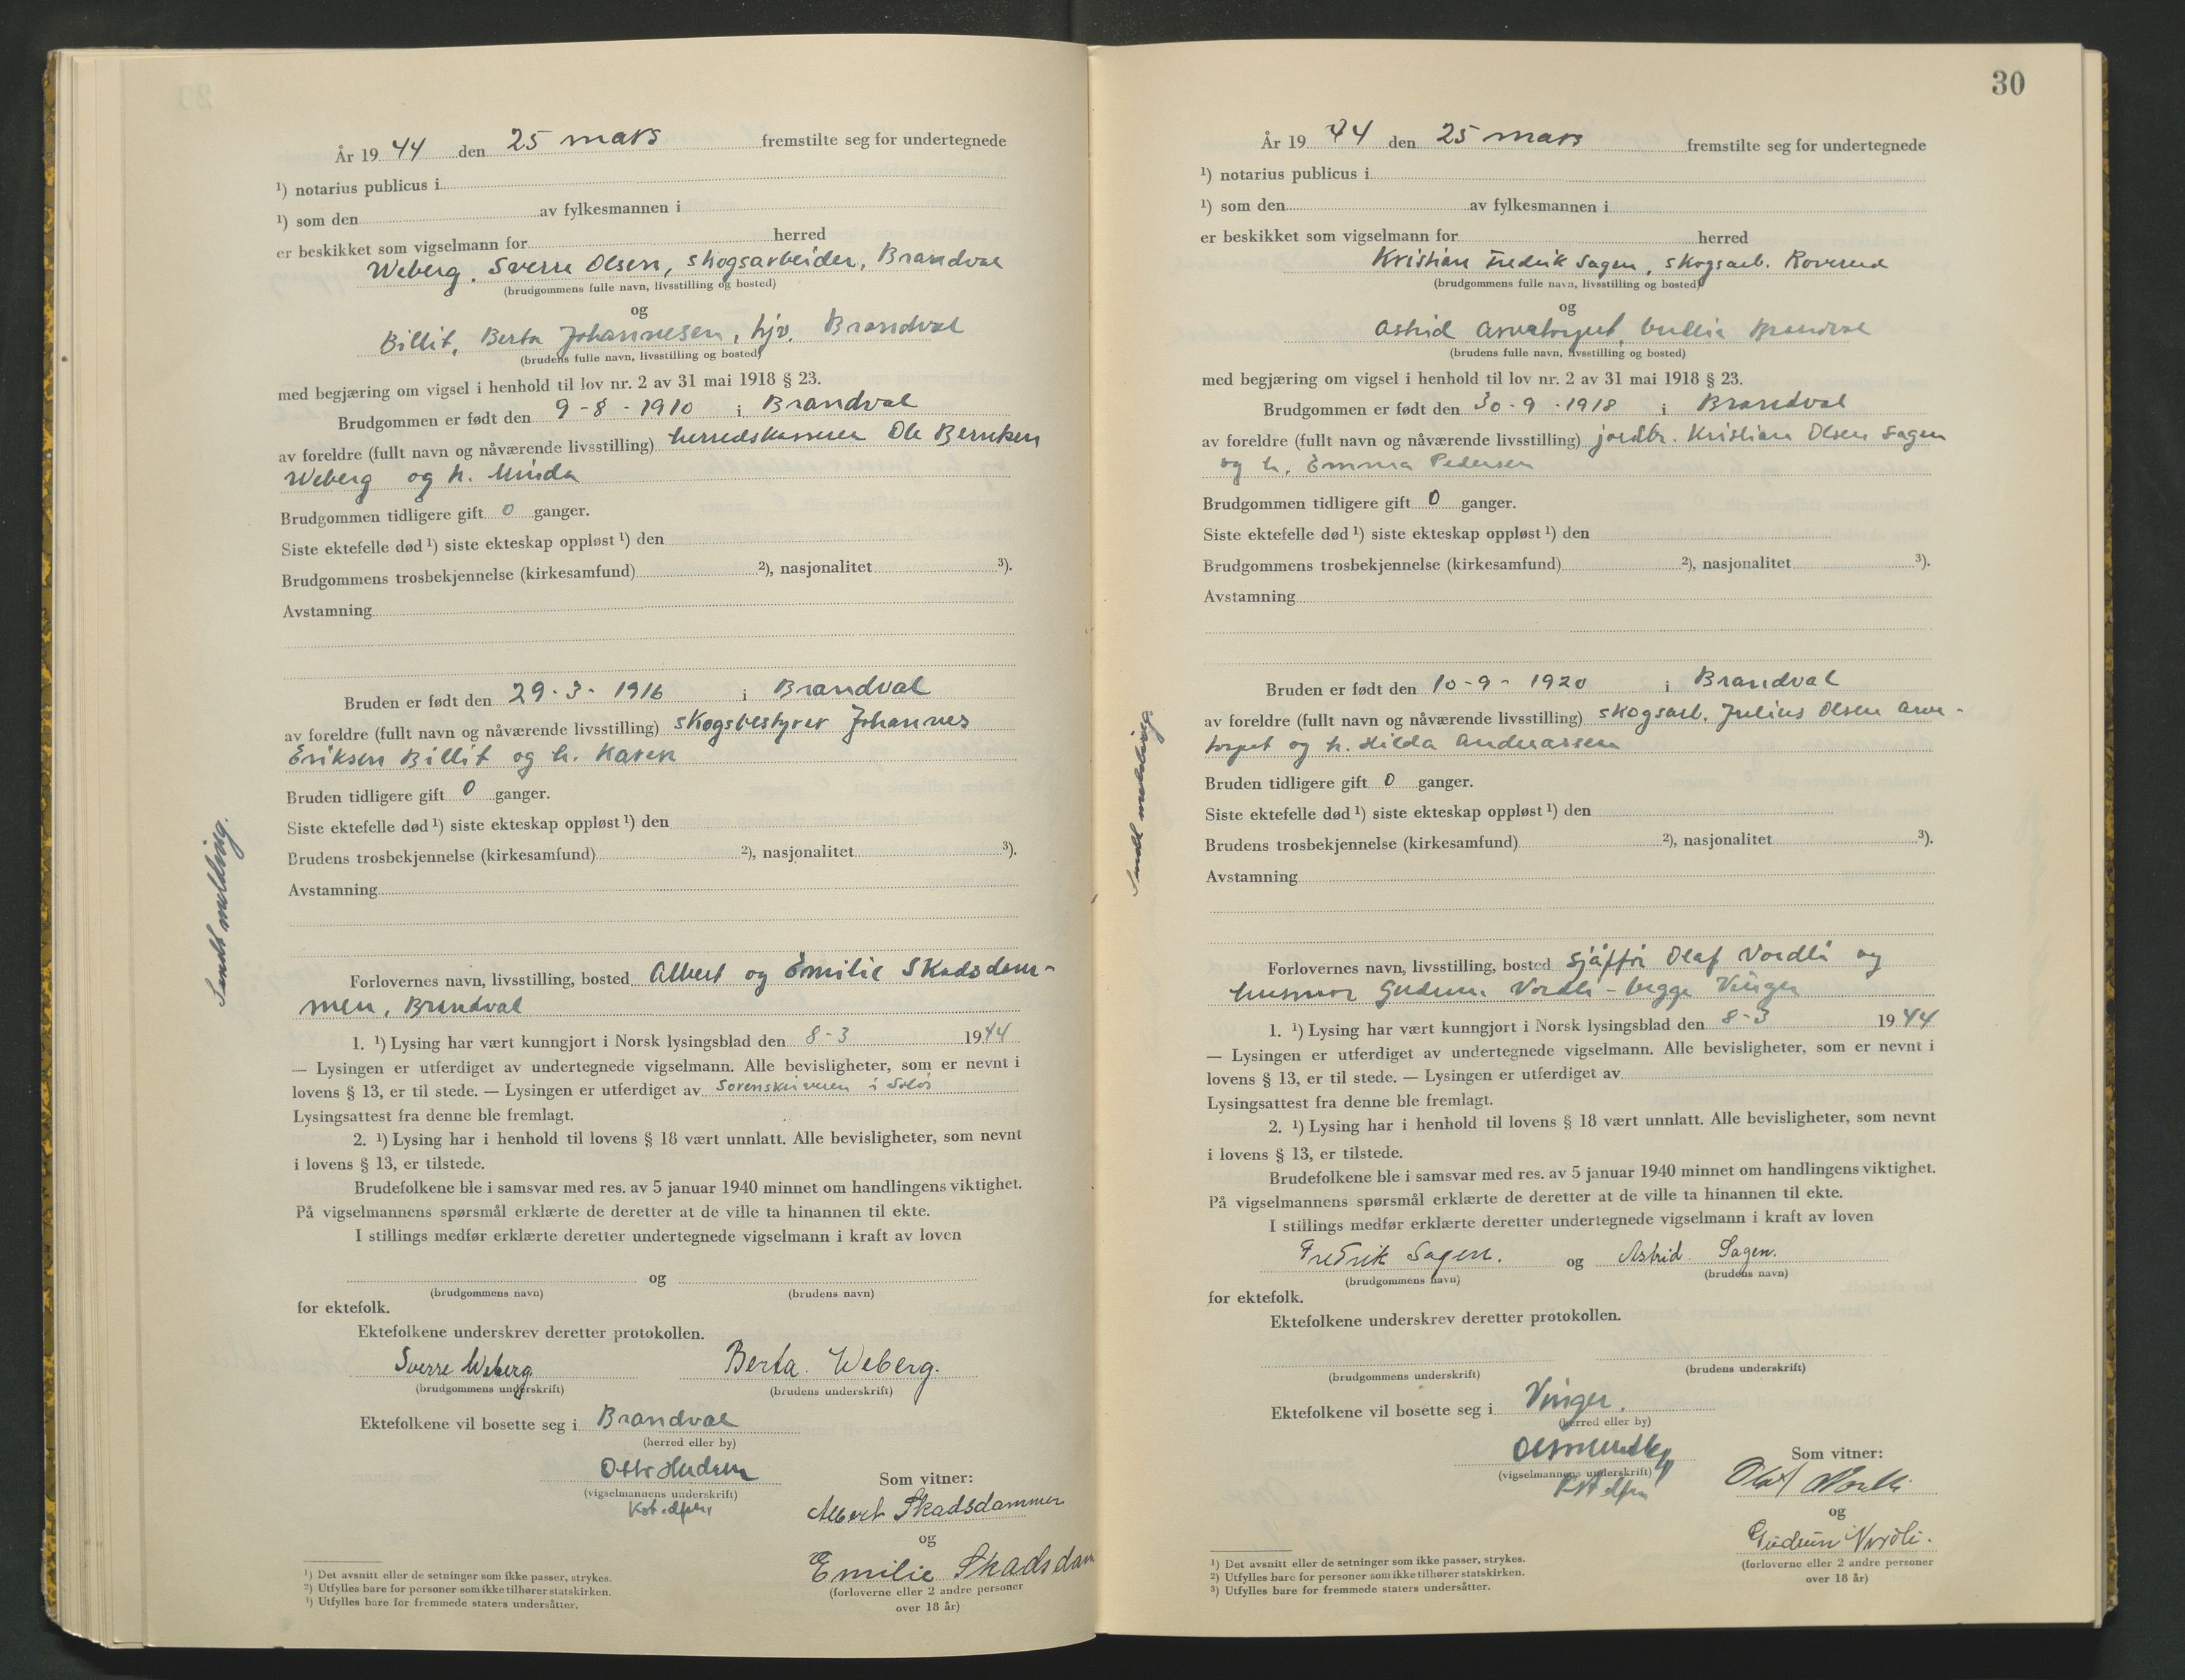 År 19 44 den 25 mars fremstilte seg for undertegnede
¹) notarius publicus i
¹) som den av fylkesmannen i
er beskikket som vigselmann for herred
Weberg, Sverre Olsen, skogsarbeider, Brandval
(brudgommens fulle navn, livsstilling og bosted)
og
Billit, Berta Johannesen, hjv. Brandval
(brudens fulle navn, livsstilling og bosted)
med begjæring om vigsel i henhold til lov nr. 2 av 31 mai 1918 § 23.
Brudgommen er født den 9-8-1910 i Brandval
av foreldre (fullt navn og nåværende livsstilling) herredskasserer Ole Berntsen
Weberg og h. Minda
Brudgommen tidligere gift 0 ganger.
Siste ektefelle død ¹) siste ekteskap oppløst ¹) den
Brudgommens trosbekjennelse (kirkesamfund) ²), nasjonalitet ³).
Avstamning
Bruden er født den 29-3-1916 i Brandval
av foreldre (fullt navn og nåværende livsstilling) skogsbestyrer Johannes
Eriksen Billit og h. Karen
Bruden tidligere gift 0 ganger.
Siste ektefelle død ¹) siste ekteskap oppløst ¹) den
Brudens trosbekjennelse (kirkesamfund) ²), nasjonalitet ³).
Avstamning
Sendt melding.
Forlovernes navn, livsstilling, bosted Albert og Emilie Skadsdam-
men, Brandval
1. ¹) Lysing har vært kunngjort i Norsk lysingsblad den 8-3 1944
— Lysingen er utferdiget av undertegnede vigselmann. Alle bevisligheter, som er nevnt i
lovens § 13, er til stede. — Lysingen er utferdiget av Sorenskriveren i Solør
Lysingsattest fra denne ble fremlagt.
2. ¹) Lysing har i henhold til lovens § 18 vært unnlatt. Alle bevisligheter, som nevnt
i lovens § 13, er tilstede.
Brudefolkene ble i samsvar med res. av 5 januar 1940 minnet om handlingens viktighet.
På vigselmannens spørsmål erklærte de deretter at de ville ta hinannen til ekte.
I stillings medfør erklærte deretter undertegnede vigselmann i kraft av loven
og
(brudgommens navn) (brudens navn)
for ektefolk.
Ektefolkene underskrev deretter protokollen.
Sverre Weberg Berta Weberg.
(brudgommens underskrift) (brudens underskrift)
Ektefolkene vil bosette seg i Brandval
(herred eller by)
Som vitner:
(vigselmannens underskrift)
Albert Skadsdammen
og
Emilie Skadsdam
(forloverne eller 2 andre personer
over 18 år)
¹) Det avsnitt eller de setninger som ikke passer, strykes.
²) Utfylles bare for personer som ikke tilhører statskirken.
³) Utfylles bare for fremmede staters undersåtter.
30
År 19 44 den 25 mars fremstilte seg for undertegnede
¹) notarius publicus i
¹) som den av fylkesmannen i
er beskikket som vigselmann for herred
Kristian Fredrik Sagen, skogsarb. Roverud
(brudgommens fulle navn, livsstilling og bosted)
og
Astrid Arnetorpet, Brandval
(brudens fulle navn, livsstilling og bosted)
med begjæring om vigsel i henhold til lov nr. 2 av 31 mai 1918 § 23.
Brudgommen er født den 30-9-1918 i Brandval
av foreldre (fullt navn og nåværende livsstilling) jordbr. Kristian Olsen Sagen
og h. Emma Pedersen
Brudgommen tidligere gift 0 ganger.
Siste ektefelle død ¹) siste ekteskap oppløst ¹) den
Brudgommens trosbekjennelse (kirkesamfund) ²), nasjonalitet ³).
Avstamning
Bruden er født den 10-9-1920 i Brandval
av foreldre (fullt navn og nåværende livsstilling) skogsarb. Julius Olsen Arne-
torpet og h. Hilda Andreassen
Bruden tidligere gift 0 ganger.
Siste ektefelle død ¹) siste ekteskap oppløst ¹) den
Brudens trosbekjennelse (kirkesamfund) ²), nasjonalitet ³).
Avstamning
Sendt melding
Forlovernes navn, livsstilling, bosted sjåfør Olaf Nordli og
husmor Gudrun Nordli - begge Vinger
1. ¹) Lysing har vært kunngjort i Norsk lysingsblad den 8-3 1944
— Lysingen er utferdiget av undertegnede vigselmann. Alle bevisligheter, som er nevnt i
lovens § 13, er til stede. — Lysingen er utferdiget av
Lysingsattest fra denne ble fremlagt.
2. ¹) Lysing har i henhold til lovens § 18 vært unnlatt. Alle bevisligheter, som nevnt
i lovens § 13, er tilstede.
Brudefolkene ble i samsvar med res. av 5 januar 1940 minnet om handlingens viktighet.
På vigselmannens spørsmål erklærte de deretter at de ville ta hinannen til ekte.
I stillings medfør erklærte deretter undertegnede vigselmann i kraft av loven
Fredrik Sagen. og Astrid Sagen.
(brudgommens navn) (brudens navn)
for ektefolk.
Ektefolkene underskrev deretter protokollen.
(brudgommens underskrift) (brudens underskrift)
Ektefolkene vil bosette seg i Vinger.
(herred eller by)
Som vitner:
(vigselmannens underskrift)
Olaf Nordli
og
Gudrun Nordli.
(forloverne eller 2 andre personer
over 18 år)
¹) Det avsnitt eller de setninger som ikke passer, strykes.
²) Utfylles bare for personer som ikke tilhører statskirken.
³) Utfylles bare for fremmede staters undersåtter.